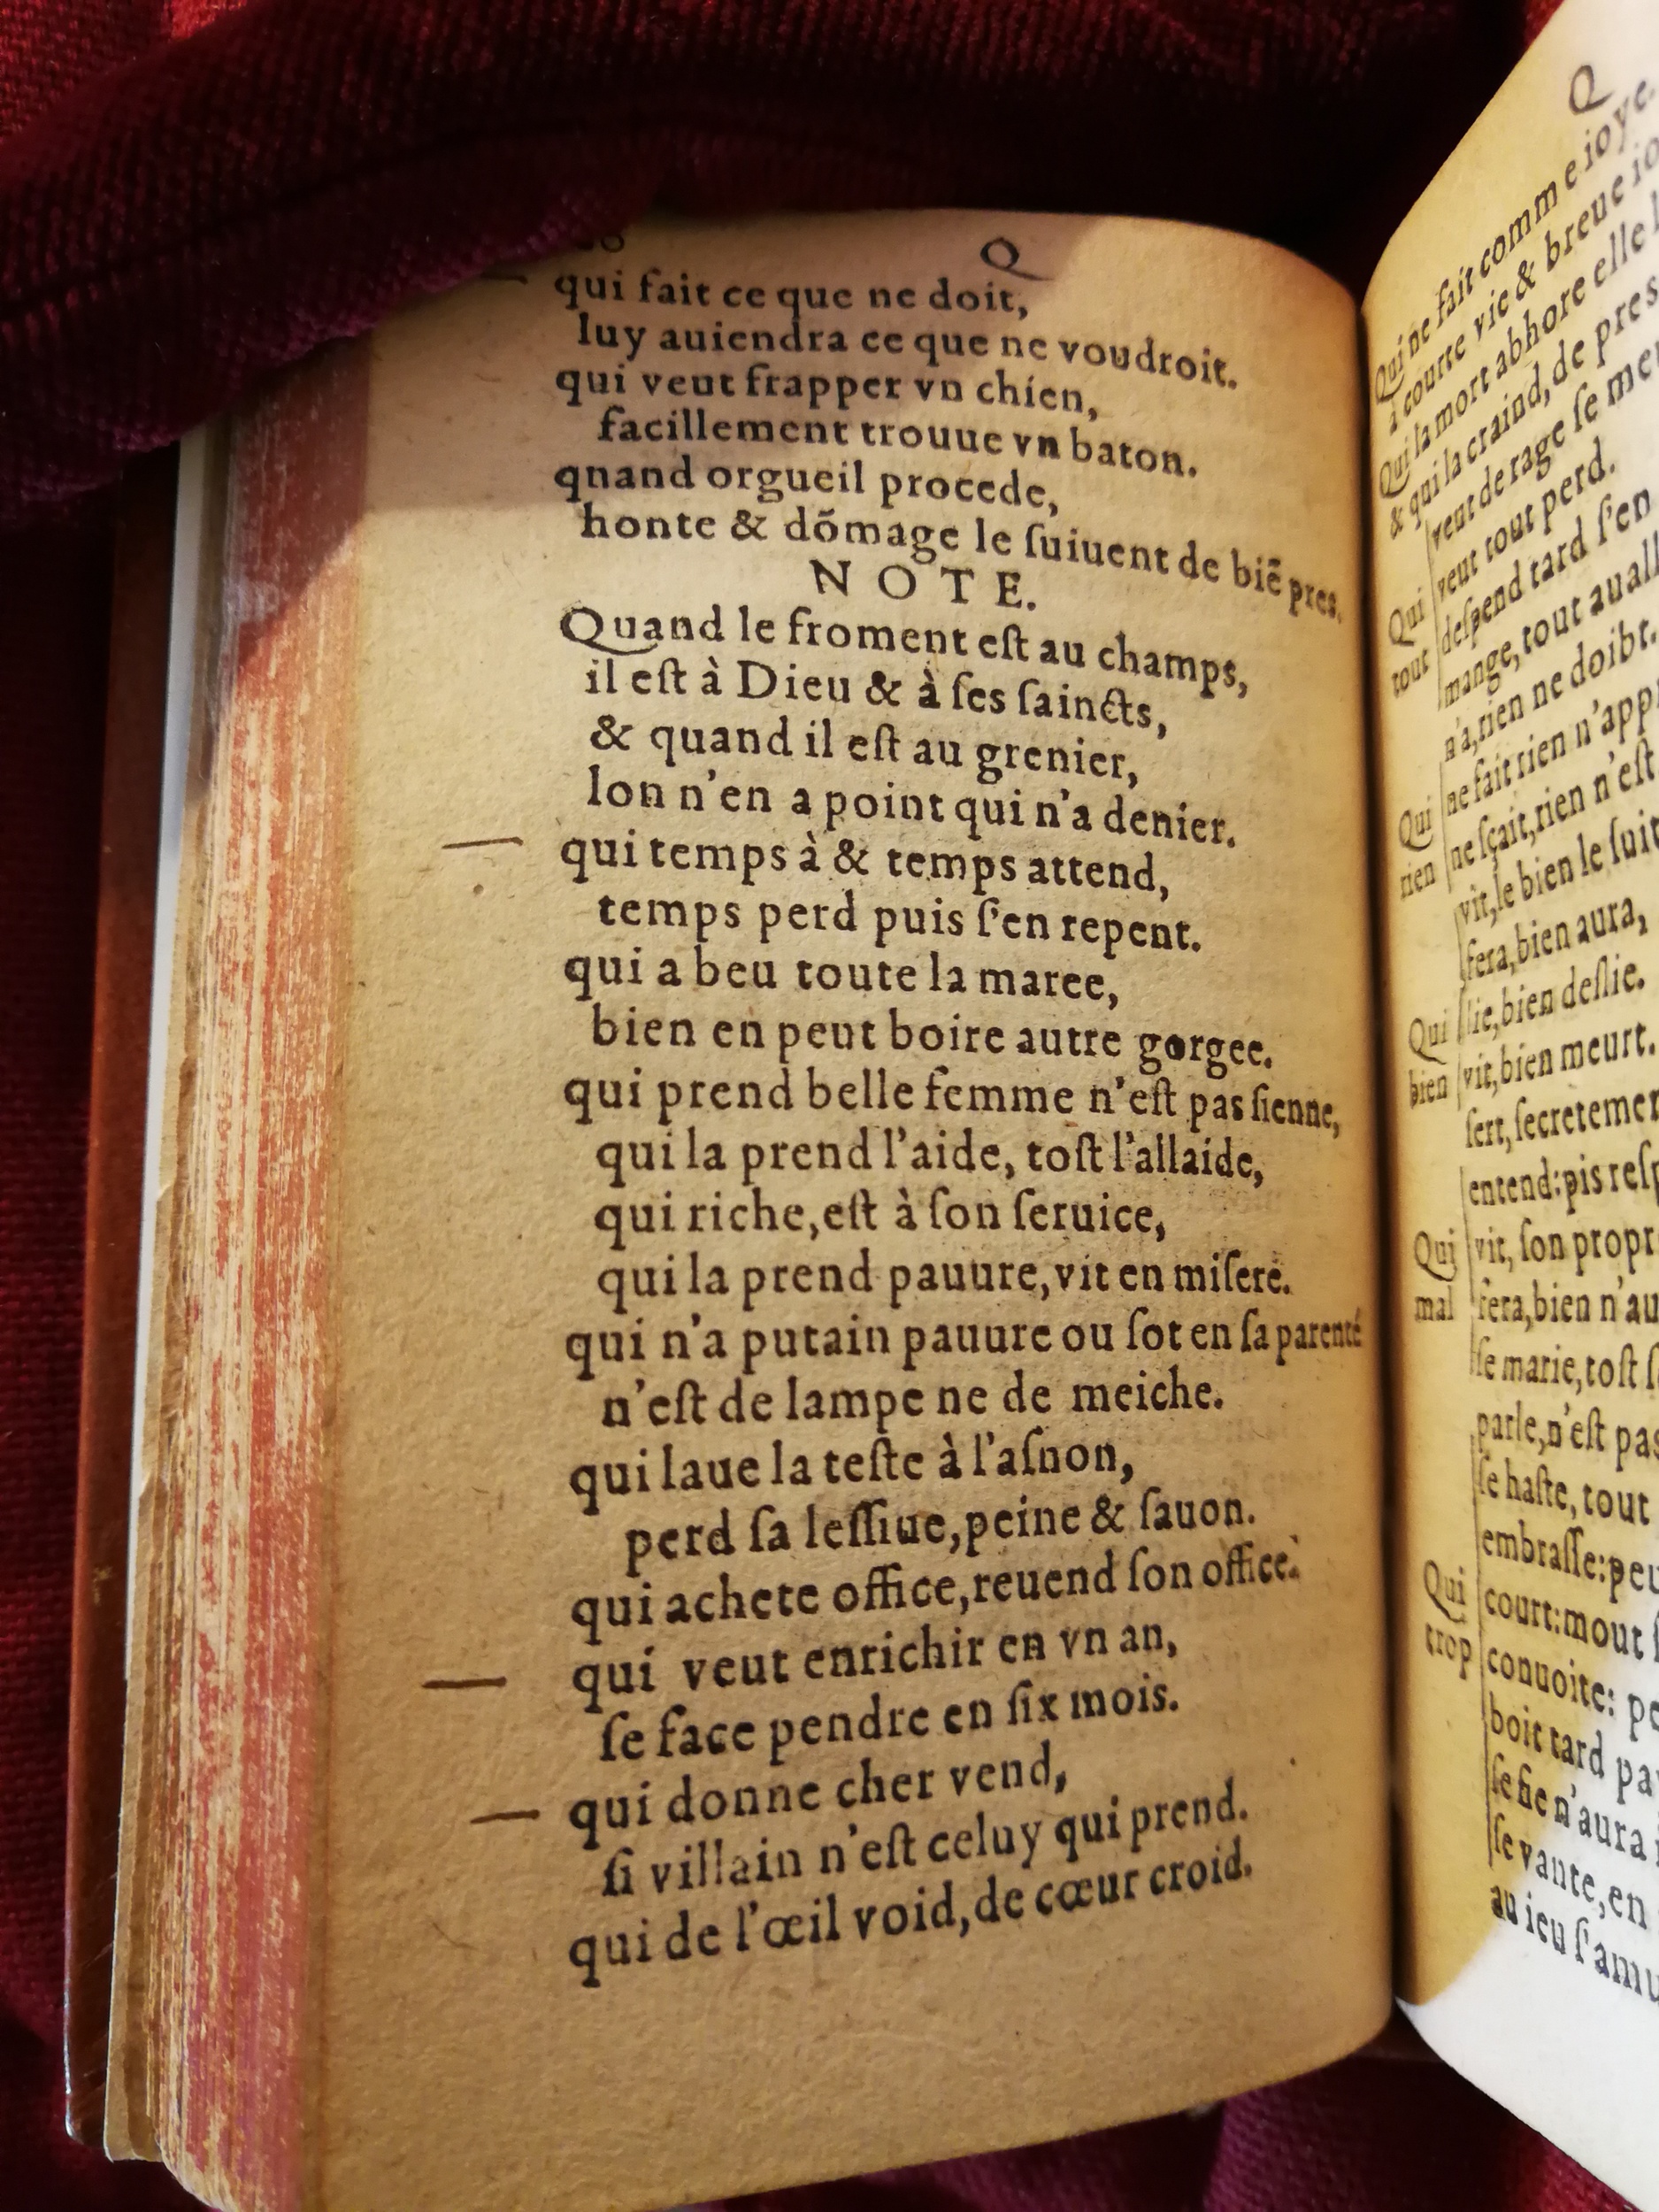 Q
qui fait ce que ne doit,
luy auiendra ce que ne voudroit.
qui veut frapper vn chien,
facillement trouue vn baton.
qnand orgueil procede,
honte & dõmage le ſuiuent de biẽ pres.
NOTE.
Quand le froment eſt au champs,
il eſt à Dieu & à ſes ſaincts,
& quand il eſt au grenier,
lon n'en a point qui n'a denier.
qui temps à & temps attend,
temps perd puis ſ'en repent.
qui a beu toute la maree,
bien en peut boire autre gorgee.
qui prend belle femme n'eſt pas ſienne,
qui la prend l'aide, toſt l'allaide,
qui riche, eſt à ſon ſeruice,
qui la prend pauure, vit en miſere.
qui n'a putain pauure ou ſot en ſa parenté
n'eſt de lampe ne de meiche.
qui laue la teſte à l'aſnon,
perd ſa leſſiue, peine & ſauon.
qui achete office, reuend ſon office.
qui veut enrichir en vn an,
ſe face pendre en ſix mois.
qui donne cher vend,
ſi villain n'eſt celuy qui prend.
qui de l'œil void, de cœur croid.
Q
Qui ne fait comme ioye.
à courte vie & breue
Qui la mort abhore elle
& qui la craind, de pres
veut de rage ſe
Qui veut tout perd.
tout deſpend tard ſ'en
mange, tout
n'a, rien ne doibt.
Qui ne fait rien
rien ne ſçait, rien n'eſt
vit, le bien le ſuit
fera, bien aura,
Qui lie, bien deſlie.
bien vit, bien meurt.
ſert,
entend: pis
Qui vit, ſon
mal fera, bien
ſe marie, toſt
parle, n'eſt pas
ſe haſte, tout
embraſſe:
Qui court: mout
trop conuoite:
boit tard
ſe fie n'aura
ſe vante, en
au ieu